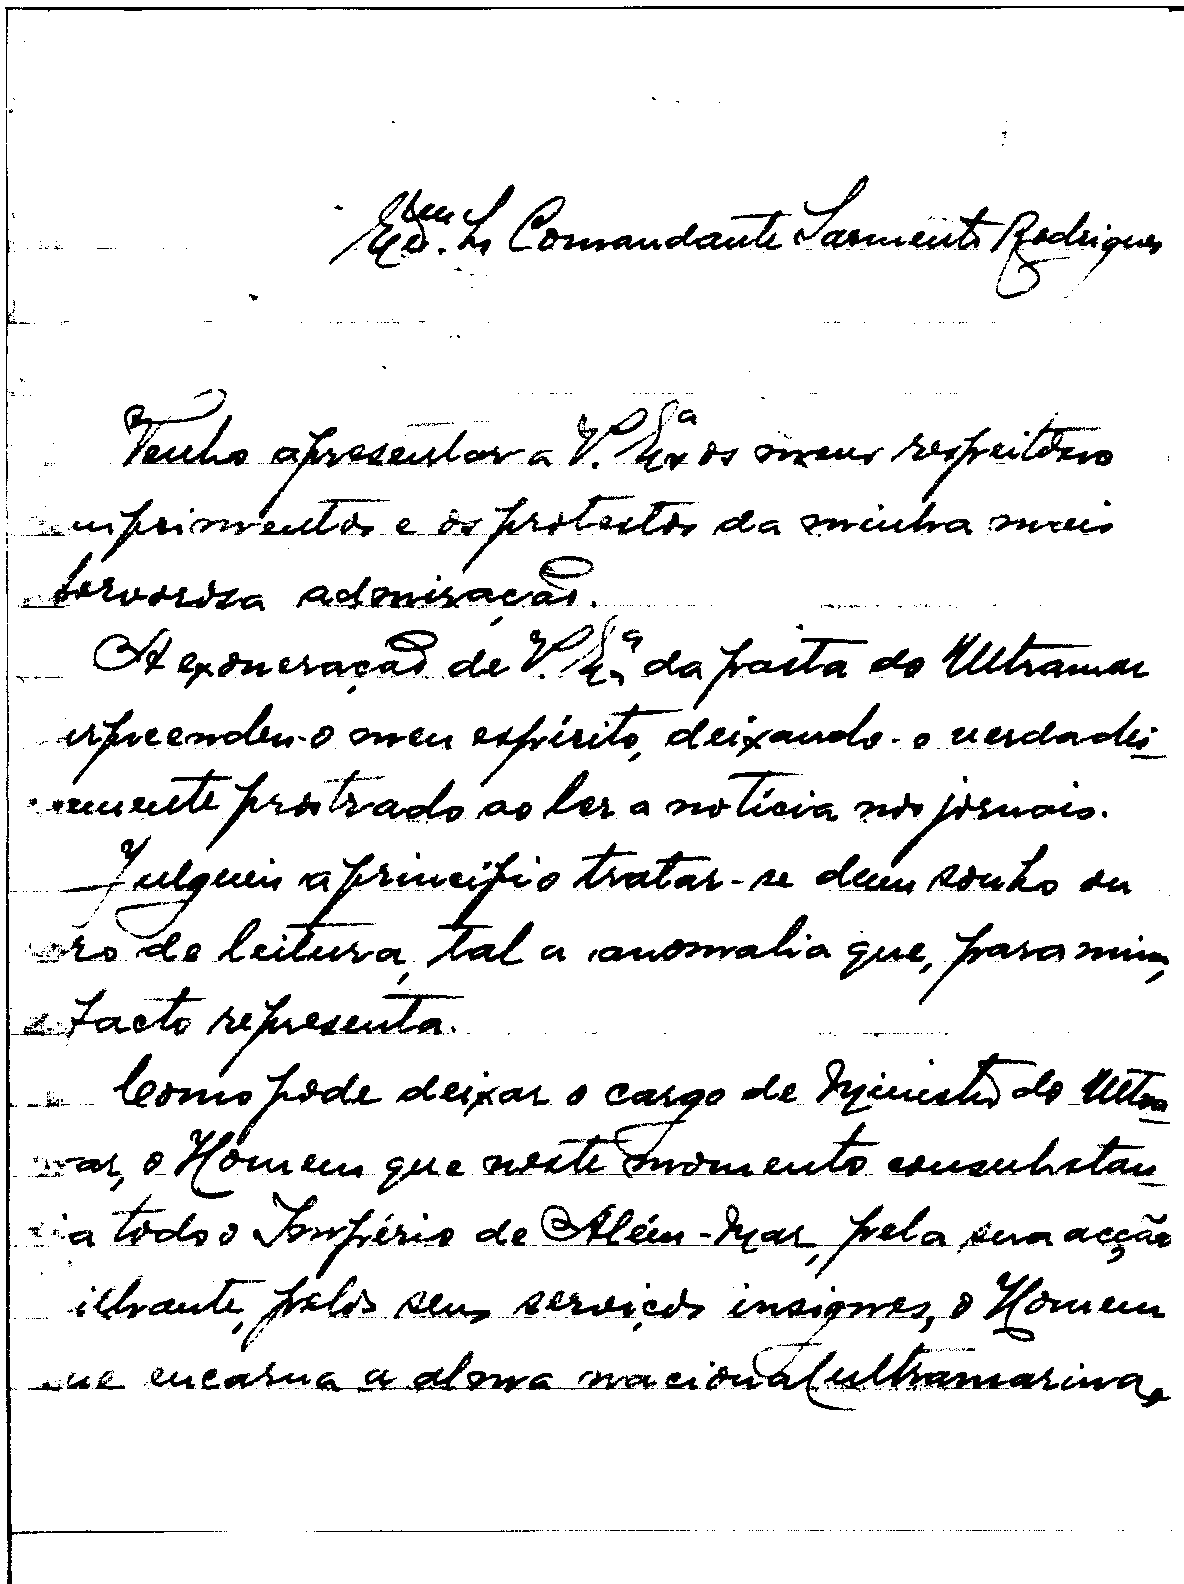 Exmo. Sr. Comandante Sarmento Rodrigues
Venho apresentar a V. Exª os meus respeitosos
umprimentos e os protestos da minha mais
fervorosa admiração.
A exoneração de V. Exª da pasta do Ultramar
urpreendeu-o meu espírito, deixando-o verdadei-
amente prostrado ao ler a notícia nos jornais.
Julguei a princípio tratar-se dum sonho ou
rro de leitura, tal a anomalia que, para mim,
o facto representa.
Como pode deixar o cargo de Ministro do Ultra-
mar, o Homem que neste momento consubstan-
cia todo o Império de Além-Mar, pela sua acção
ilhante, pelos seus serviços insignes, o Homem
ue encarna a alma nacional ultramarina,